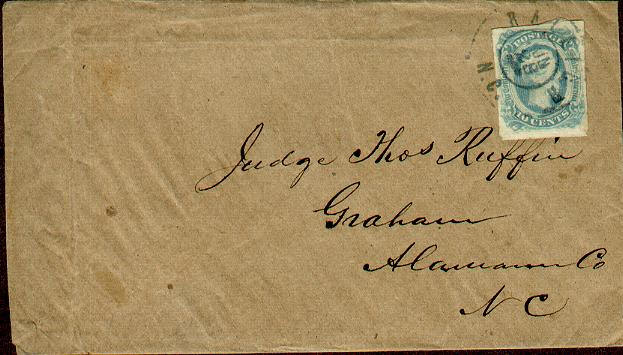 POSTAGE
10 CENTS
N.C.
Judge Thos Ruffin
Graham
Alamance Co
N C